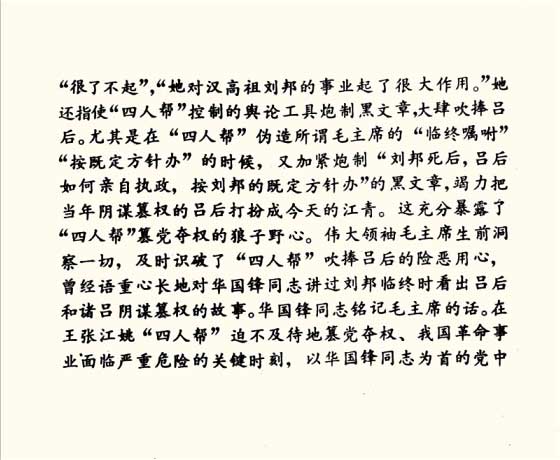 “很了不起”，“她对汉高祖刘邦的事业起了很大作用。”她
还指使“四人帮”控制的舆论工具炮制黑文章，大肆吹捧吕
后。尤其是在“四人帮”伪造所谓毛主席的“临终嘱咐”
“按既定方针办”的时候，又加紧炮制“刘邦死后，吕后
如何亲自执政，按刘邦的既定方针办”的黑文章，竭力把
当年阴谋篡权的吕后打扮成今天的江青。这充分暴露了
“四人帮”篡党夺权的狼子野心。伟大领袖毛主席生前洞
察一切，及时识破了“四人帮”吹捧吕后的险恶用心，
曾经语重心长地对华国锋同志讲过刘邦临终时看出吕后
和诸吕阴谋篡权的故事。华国锋同志铭记毛主席的话。在
王张江姚“四人帮”迫不及待地篡党夺权、我国革命事
业面临严重危险的关键时刻，以华国锋同志为首的党中